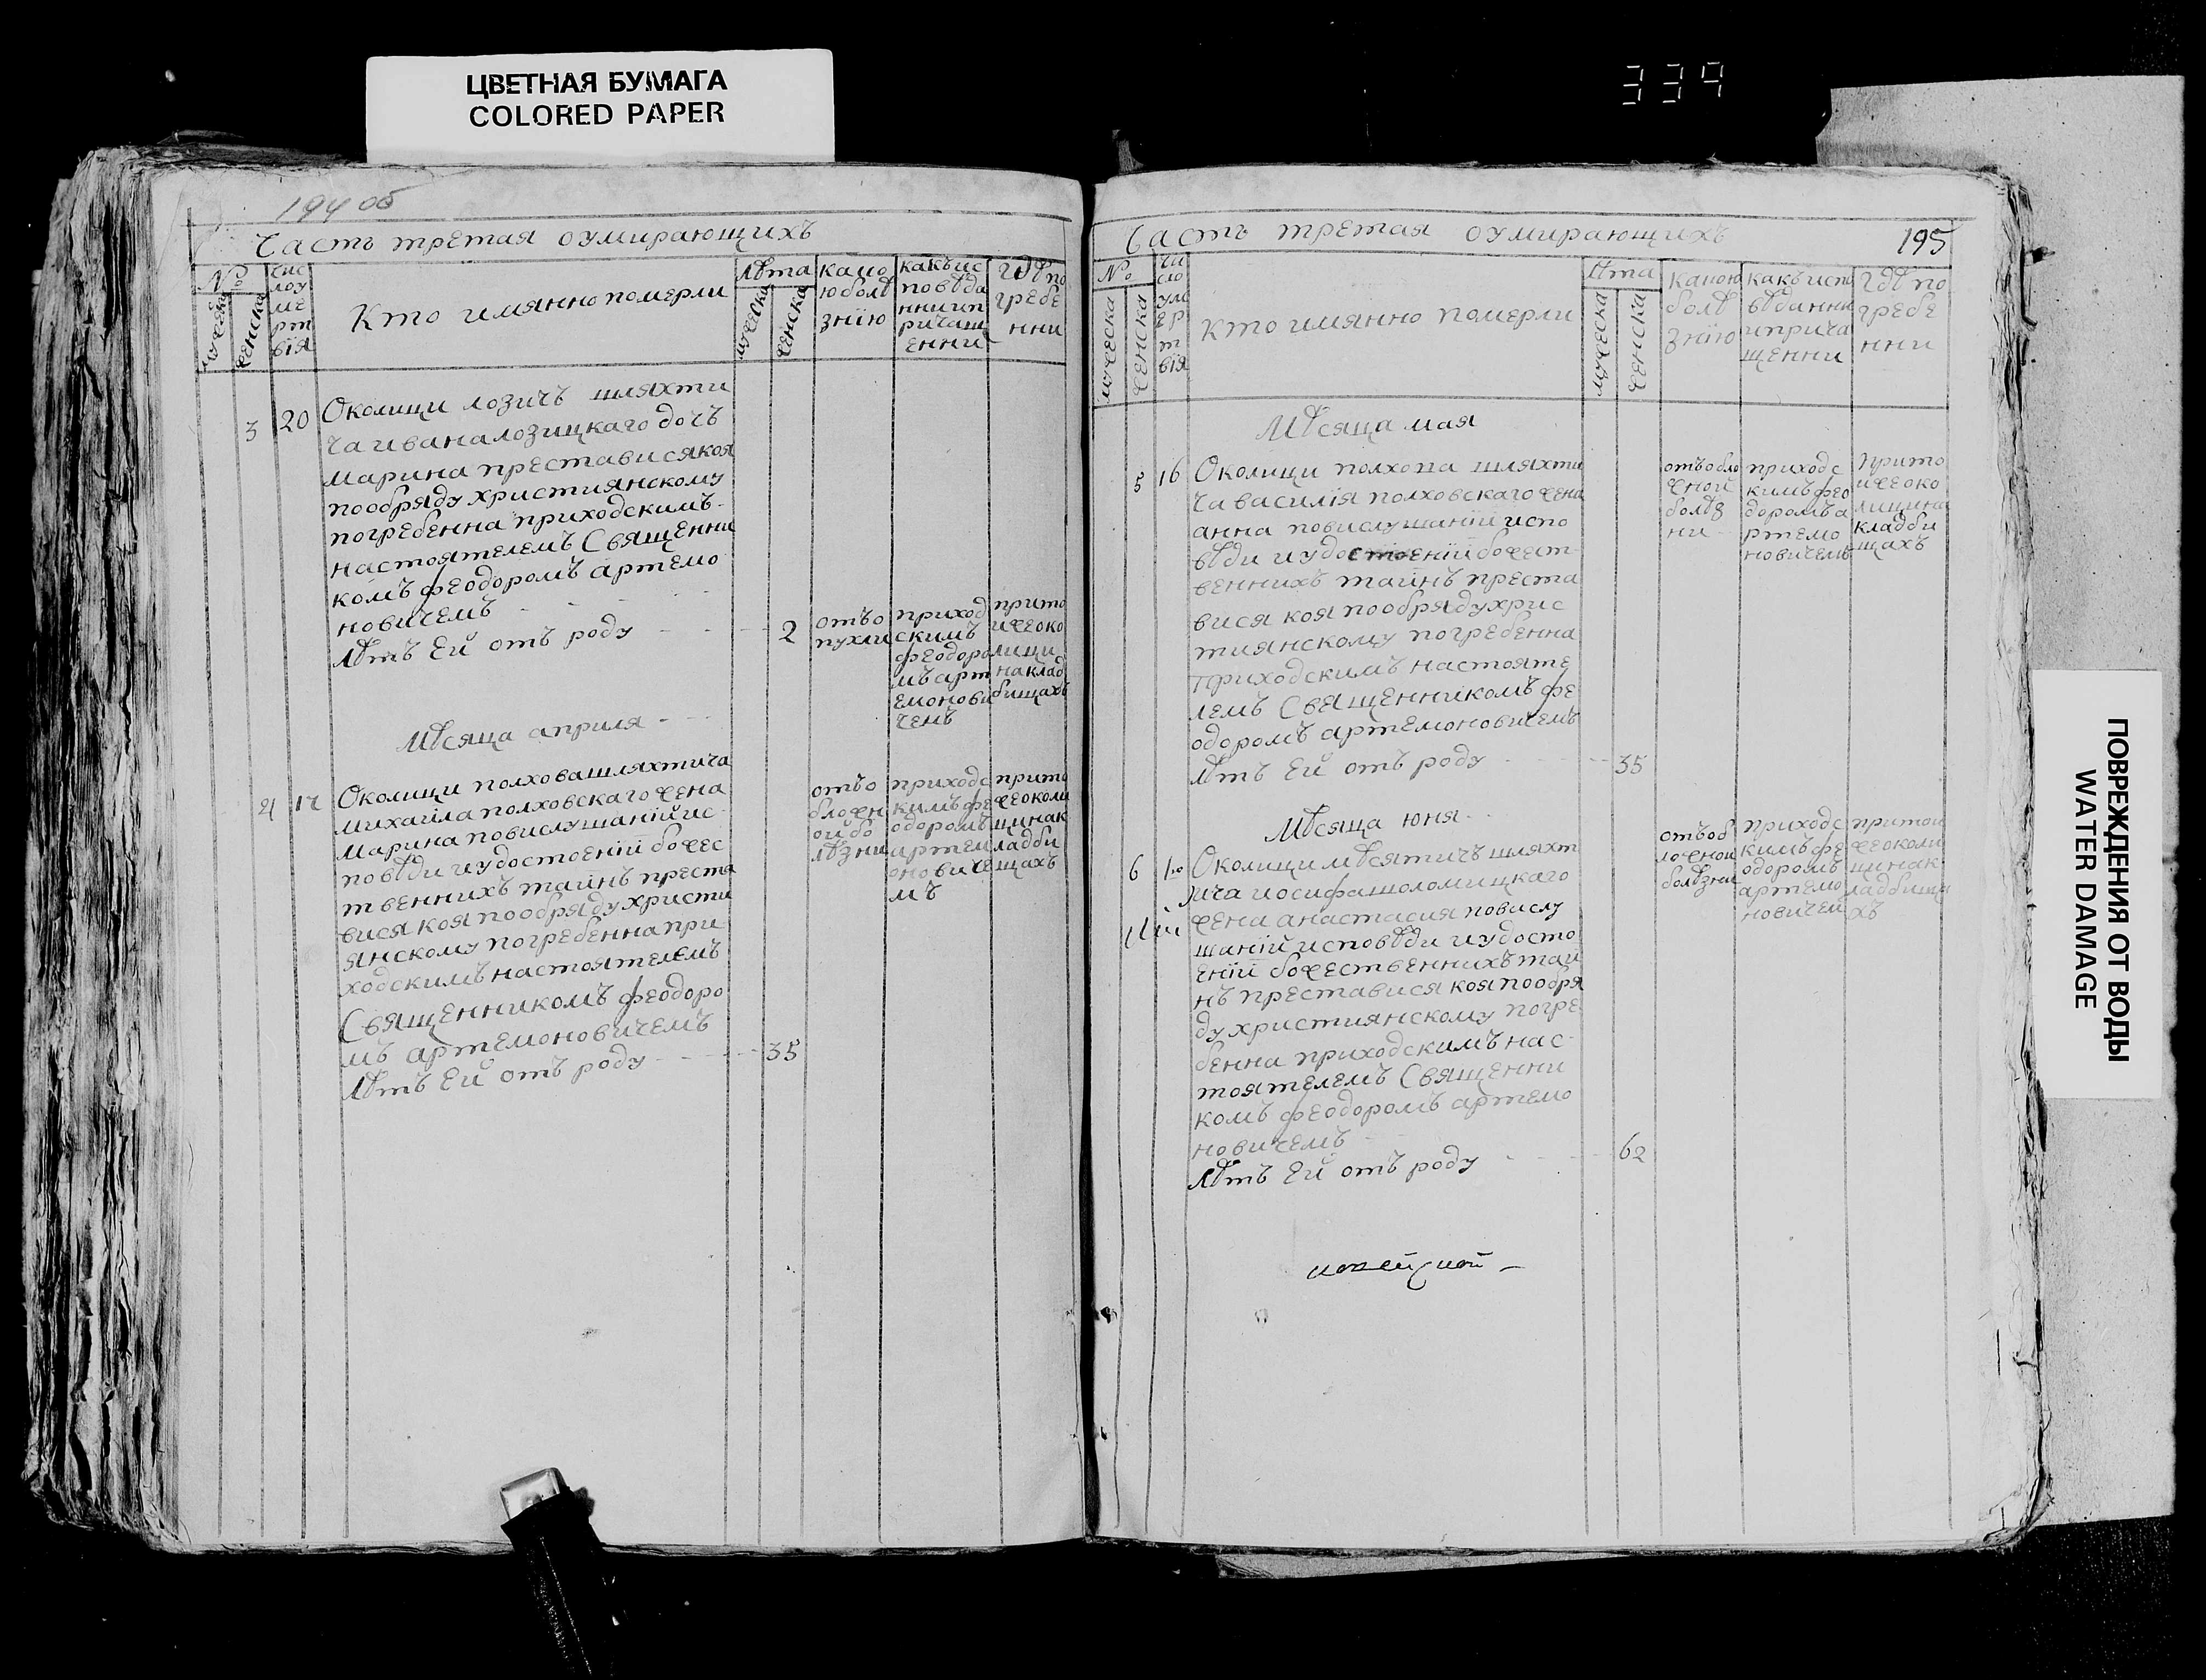 ЦВЕТНАЯ БУМАГА
COLORED PAPER
339
194 об
Часть третая оумирающихъ
№
мужеска
женска
чис
лоу
ме
рт
вїя
Кто имянно померли
Лѣта
мужеска
женска
кано
ю болѣ
знїю
какъ ис
повѣда
нни ип
ричащ
енни
гдѣ по
гребе
нни
3 20
Околици лозичъ шляхти
ча ивана лозицкаго дочъ
марина преставися коя
пообряду християнскому
погребенна приходскимъ
настоятелемъ Священни
комъ феодоромъ артемо
новичемъ
Лѣтъ Ей отъ роду 2
отъ о
пухли
приход
скимъ
феодоро
мъ арт
емонови
чемъ
прито
йже око
лици
на клад
бищахъ
Мѣсяца априля
4 17
Околици полхова шляхтича
михаіла полховскаго жена
марина повислушанїй ис
повѣди иудостоенїй божес
твеннихъ таинъ преста
вися коя пообряду христи
янскому погребенна при
ходскимъ настоятелемъ
Священникомъ феодоро
мъ артемоновичемъ
Лѣтъ Ей отъ роду 35
отъ о
бложн
ой бо
лѣзни
приходс
кимъ фе
одоромъ
артем
онвиче
мъ
прито
жеоколи
ци на к
ладби
щахъ
195
Часть третая оумирающихъ
№
мужеска
женска
чи
сло
уме
р
т
вїя
Кто имянно померли
Лѣта
мужеска
женска
каною
болѣ
знїю
какъ испо
вѣданни
ипричa
щенни
гдѣ по
гребе
нни
Мѣсяца мая
5 16
Околици полхова шляхти
ча василїя полховскаго жена
анна повислушанїй испо
вѣди иудостоенїй божест
веннихъ таинъ преста
вися коя пообряду хрис
тиянскому погребенна
Приходскимъ настояте
лемъ Священникомъ фе
одоромъ артемоновичемъ
Лѣтъ Ей отъ роду 35
отъ обло
жной
болѣз
ни
приходс
кимъ фео
доромъ а
ртемо
новичемъ
прито
йже око
лици на
кладби
щахъ
Мѣсяца юня
6
Околици мѣсятичъ шляхт
ича иосифа шоломицкаго
жена анастасия повислу
шанїй исповѣди иудосто
енїй божественнихъ таи
нъ преставися коя пообря
ду християнскому погре
бенна приходскимъ нас
тоятелемъ Священни
комъ феодоромъ артемо
новичемъ
Лѣтъ Ей отъ роду 62
отъ об
ложной
болѣзни
приходс
кимъ фе
одоромъ
артемо
новичем
притои
жеоколи
ци на к
ладбища
хъ
ПОВРЕЖДЕНИЯ ОТ ВОДЫ
WATER DAMAGE